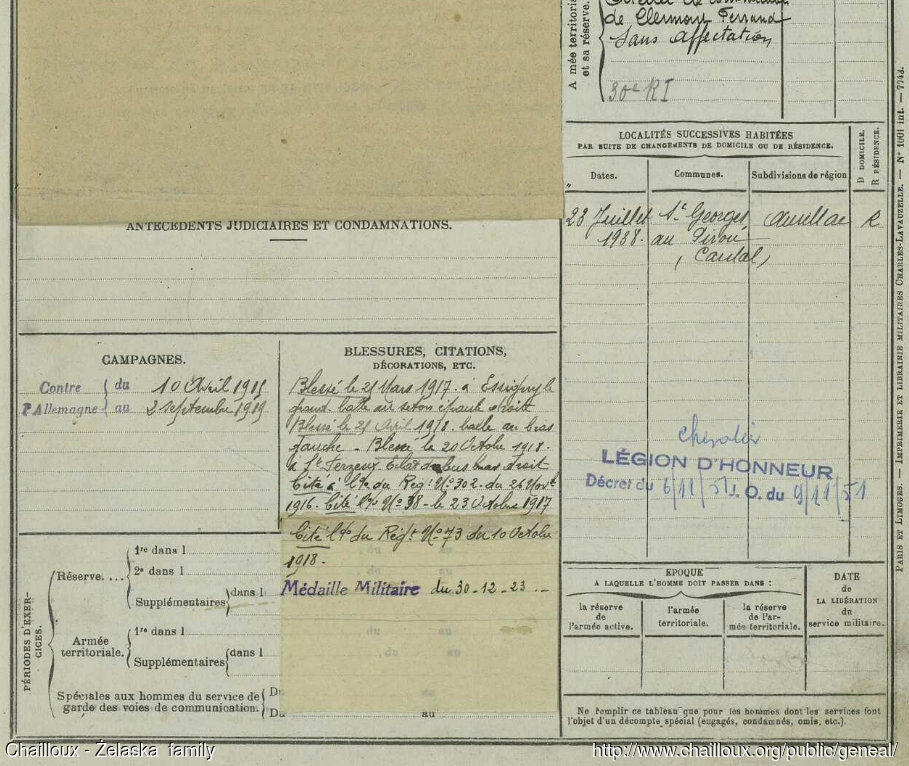 de Clermont Ferrand
Sans affectation
30e RI
A mée territoria
et sa réserve.
LOCALITÉS SUCCESSIVES HABITÉES
PAR SUITE DE CHANGEMENTS DE DOMICILE OU DE RÉSIDENCE.
D DOMICILE.
R RÉSIDENCE.
Dates. Communes. Subdivisions de région
28 Juillet St Georges Aurillac R
1938. au
(Cantal)
ANTÉCÉDENTS JUDICIAIRES ET CONDAMNATIONS.
CAMPAGNES.
Contre du 10 Avril 1915
l'Allemagne au 2 septembre 1919
BLESSURES, CITATIONS,
DÉCORATIONS, ETC.
Blessé le 21 Mars 1917 à Essigny le
grand. balle au séton épaule droite
Blessé le 21 Avril 1918. balle au bras
gauche. Blessé le 20 Octobre 1918.
à St Fergeux. Eclat d'obus bras droit
Cité à l'ordre du Régt No 302 du 26 Novbre
1916. Cité No 38 le 23 Octobre 1917
Cité du Régt No 73 du 10 Octobre
1918.
Médaille Militaire du 30-12-23
Chevalier
LÉGION D'HONNEUR
Décret du 6/11/51 J. O. du 9/11/51
PÉRIODES D'EXER-
CICES.
Réserve....
1re dans l
2e dans l
Supplémentaires dans l
Armée
territoriale.
1re dans l
Supplémentaires dans l
Spéciales aux hommes du service de
garde des voies de communication.
Du
Du au
EPOQUE
A LAQUELLE L'HOMME DOIT PASSER DANS :
la réserve
de
l'armée active.
l'armée
territoriale.
la réserve
de l'ar-
mée territoriale.
DATE
de
LA LIBÉRATION
du
service militaire.
Ne remplir ce tableau que pour les hommes dont les services font
l'objet d'un décompte spécial (engagés, condamnés, omis, etc.).
PARIS ET LIMOGES. — IMPRIMERIE ET LIBRAIRIE MILITAIRES CHARLES-LAVAUZELLE. — N° 1001 int. — 7743.
Chailloux - Żelaska family
http://www.chailloux.org/public/geneal/